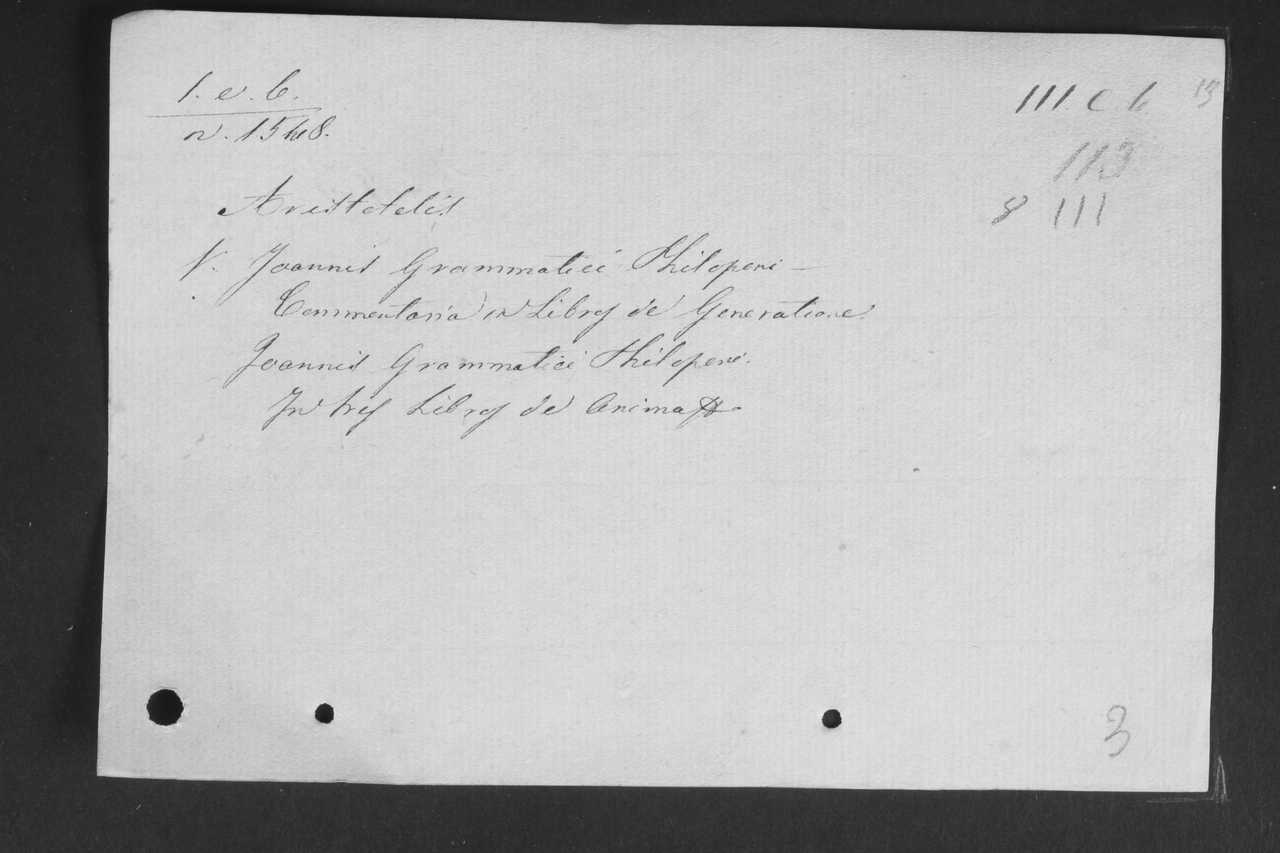 1. e. 6.
n. 1548.
III. C. 6 13
113
8 111
Aristotelis
V. Joannis Grammatici Philoponi –
Commentaria in Libros de Generatione
Joannis Grammatici Philoponi.
In tres Libros de Anima
3